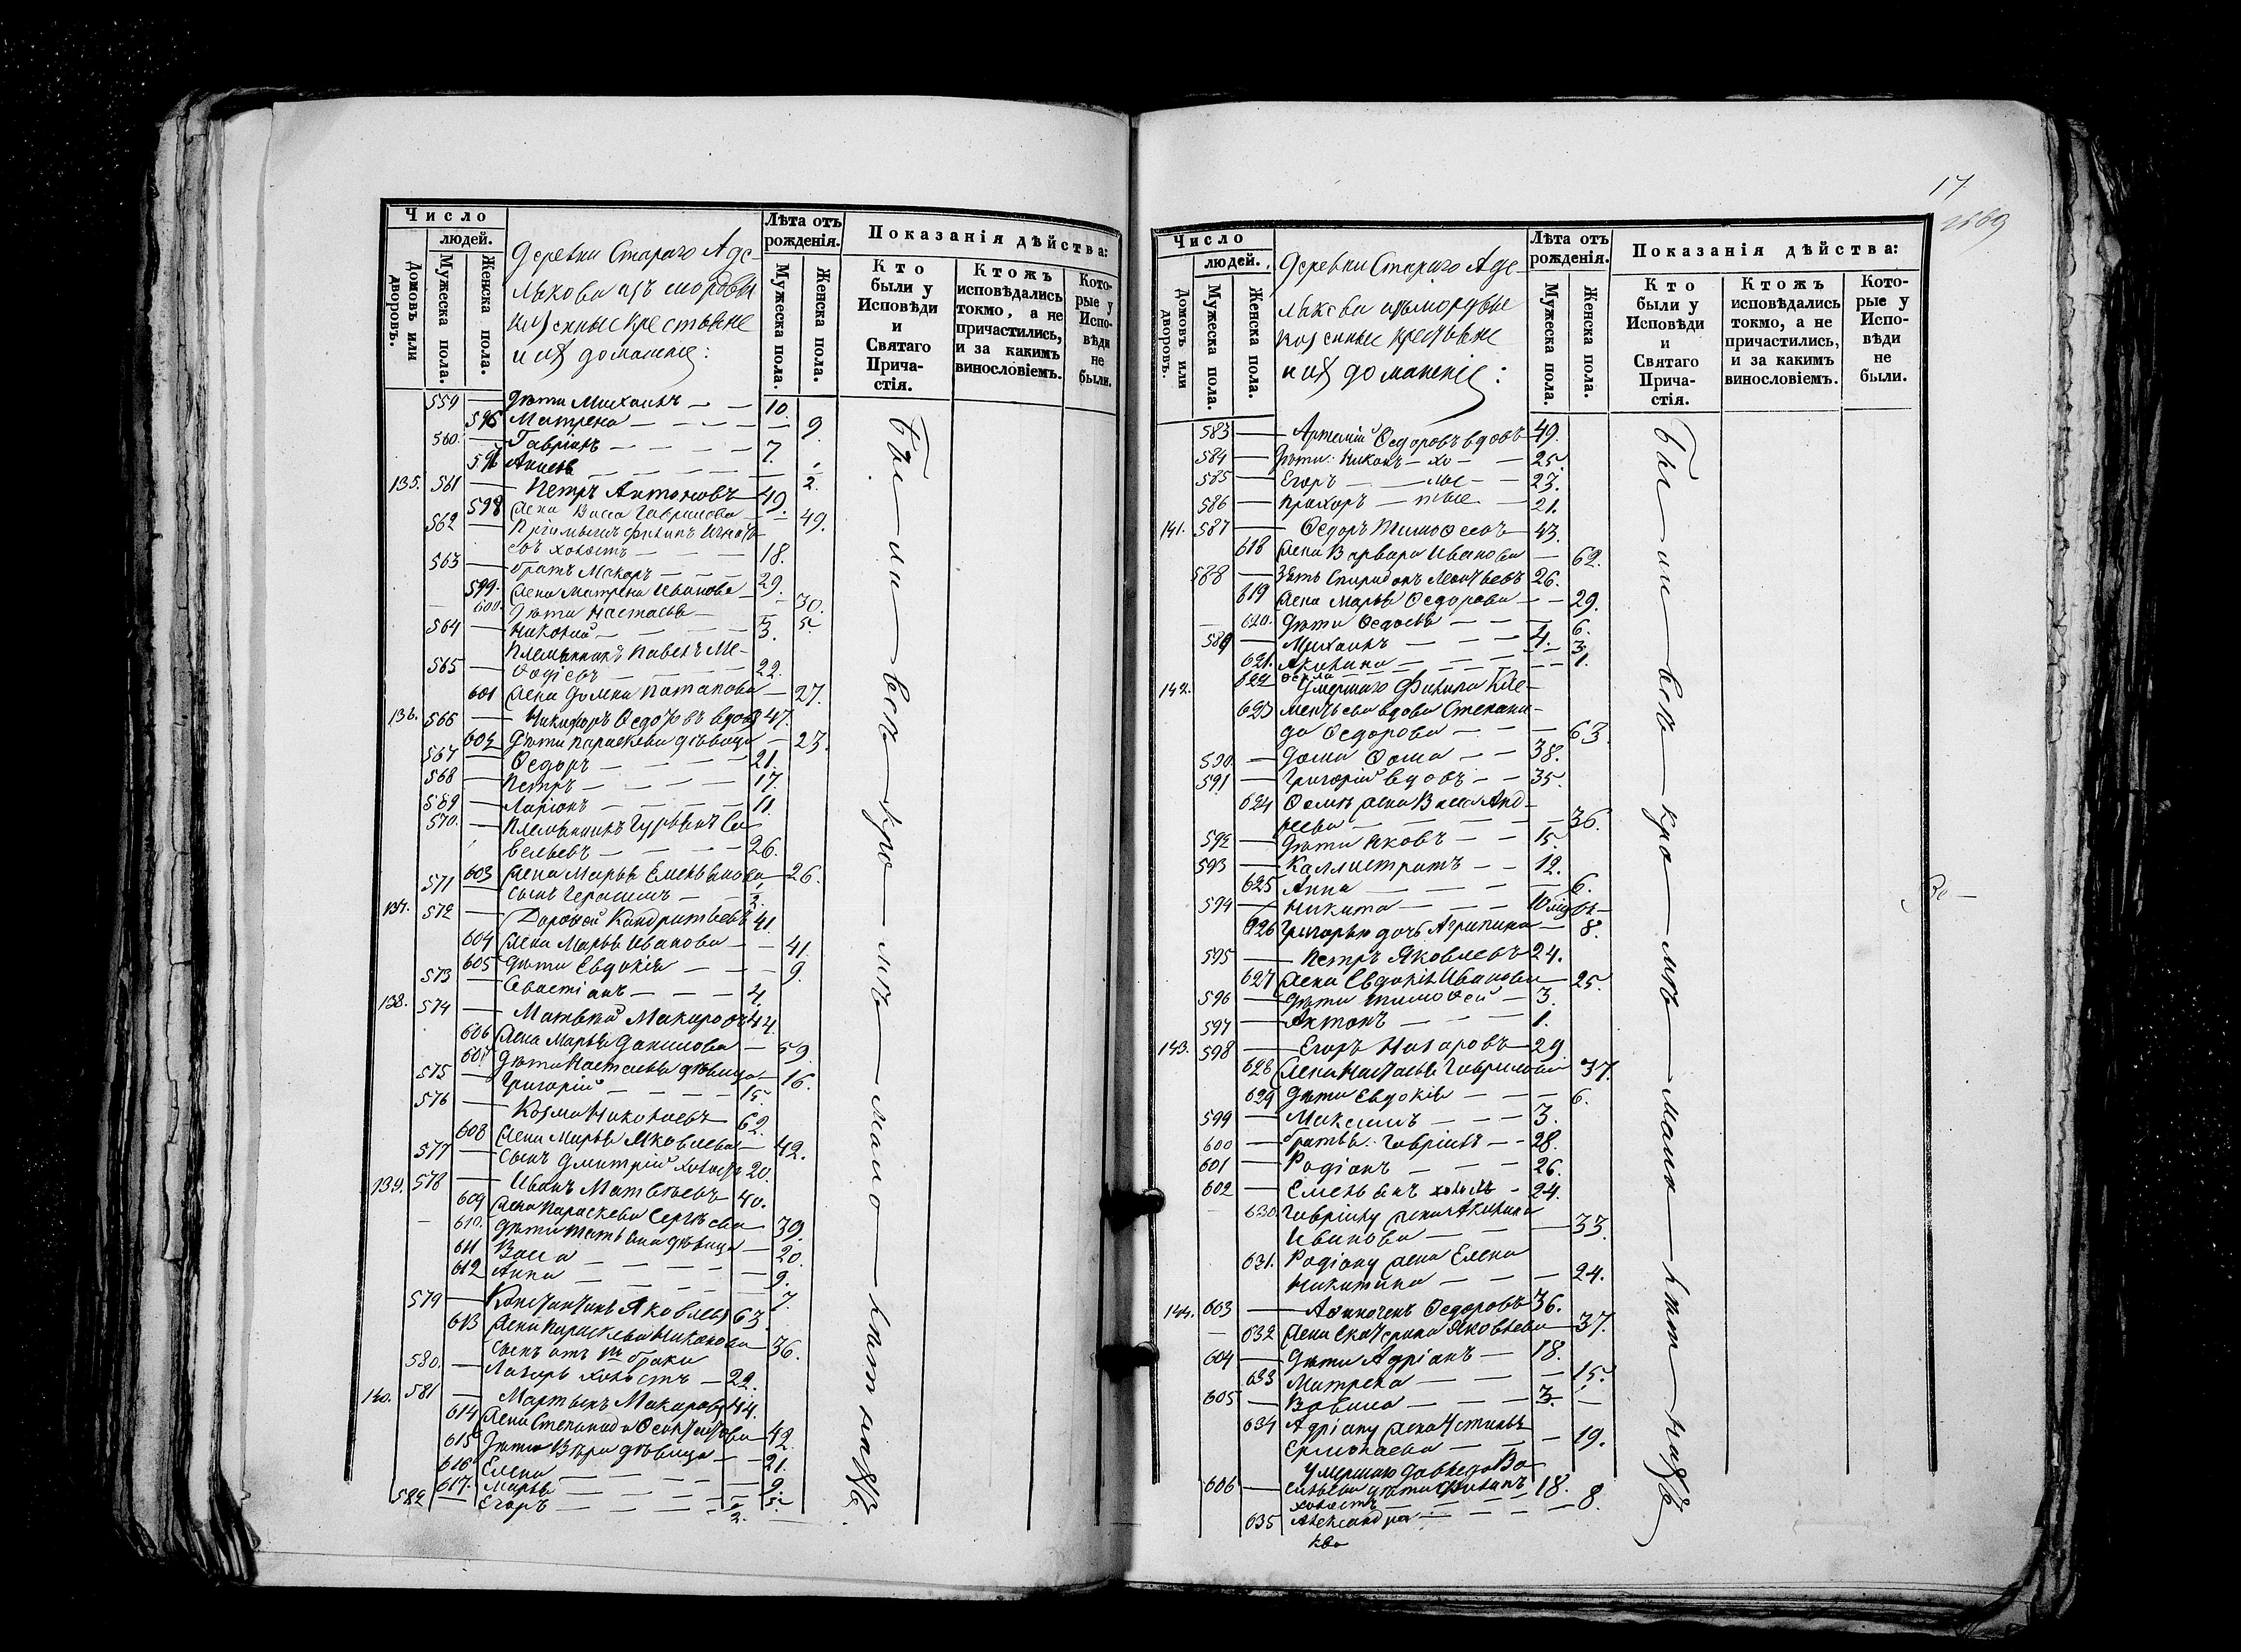 Число
людей.
Домовъ или дворовъ.
Мужеска пола.
Женска пола.
Деревни Стараго Аде-
лякова изъ мордвы
казенные крестьяне
и их домашніе:
Лѣта отъ рожденія.
Мужеска пола.
Женска пола.
Показанія дѣйства:
Кто были у Исповѣди и Святаго Причастія.
Ктожъ исповѣдались токмо, а не причастились, и за какимъ винословіемъ.
Которые у Исповѣди не были.
559 — дѣти Михаилъ — — 10.
595 Матрена — — — 9.
560. — Гавріилъ — — — 7.
596 — — — — 2.
135. 561 — Петръ Антоновъ — 49.
598 жена Васса Гаврилова — — 49.
562 — Пріемышъ Филипъ
холостъ — — — 18.
563 — братъ Макаръ — — — 29.
599. жена Матрена Иванова — 30.
600. дѣти Настасья — — 5.
564 — Николай — — — 3.
Племянникъ Павелъ Ме-
565 — фодіевъ — — — 22.
601 жена Домна Потапова — 27.
136. 566 — Никифоръ Ѳедоровъ вдовъ 47.
602 Дѣти Параскева дѣвица — 23.
567 — Ѳедоръ — — — 21.
568 — Петръ — — — 17.
569 — Ларіонъ — — — 11.
570. — Племянникъ Гурьянъ Са-
вельевъ — — — 26.
603 жена Марья Емельянова — 26.
571 — сынъ Герасимъ — —
137. 572 — Дороѳей Кандратьевъ 41.
604 жена Марья Иванова — — 41.
605 дѣти Евдокія — — — 9.
573 — Севастіанъ — — — 4.
138. 574 — Матвѣй Макаровъ 44.
606 жена Марья Данилова — 59.
607 дѣти Настасья дѣвица — 16.
575 — Григорій — — — 15.
576 — Козма Николаевъ — 62.
608 жена Марья Яковлева — 42.
577 — сынъ Дмитрій холостъ 20.
139. 578 — Иванъ Матвѣевъ — 40.
609 жена Параскева Сергѣева — 39.
610. дѣти Татьяна дѣвица — 20.
611 Васса — — — 9.
612 Анна — — — 7.
579 — Константинъ Яковлевъ 63.
613 жена Параскева Никонова — 36.
сынъ отъ 1го брака
580. — Лазарь холостъ — 22.
140. 581 — Мартынъ Макаровъ 44.
614 жена Степанида — 42.
615 дѣти Вѣра дѣвица — — 21.
616 Елена — — — 9.
617. Марья — — — 5.
582 — Егоръ — — — 2.
Были — всѣ — кро — мѣ — мало — лѣт — ныхъ
17
1569
Число
людей.
Домовъ или дворовъ.
Мужеска пола.
Женска пола.
Деревни Стараго Аде-
лякова изъ мордвы
казенные крестьяне
и их домашніе:
Лѣта отъ рожденія.
Мужеска пола.
Женска пола.
Показанія дѣйства:
Кто были у Исповѣди и Святаго Причастія.
Ктожъ исповѣдались токмо, а не причастились, и за какимъ винословіемъ.
Которые у Исповѣди не были.
583 — Артемій Ѳедоровъ вдовъ 49.
584 — дѣти: Никонъ — хо — — 25.
585 — Егоръ — — ло — — 23.
586 — Прохоръ — — 21.
141. 587 — Ѳедоръ Тимоѳеевъ — 43.
618 жена Варвара Иванова — 62.
588 — зять Спиридонъ Леонтьевъ 26.
619 жена Марья Ѳедорова — — 29.
620. дѣти Ѳедосья — — — 6.
589 — Михаилъ — — — 4.
621. Акилина — — — 3.
622 Ѳекла — — — 1.
142. умершаго Филипа Кле-
623 ментьева вдова Степани-
да Ѳедорова — — — 63.
590 — дѣти Ѳома — — 38.
591 — Григорій вдовъ — — 35.
624 Ѳомы жена Васса Анд-
реева — — — 36.
592 — дѣти Яковъ — — 15.
593 — Каллистратъ — — 12.
625 Анна — — — 6.
594 — Никита — — — 10
626 Григорью дочь Агрипина — 8.
595 — Петръ Яковлевъ 24.
627 жена Евдокія Иванова — 25.
596 — дѣти Тимоѳей — 3.
597 — Антонъ — — — 1.
143. 598 — Егоръ Назаровъ — 29.
628 жена Настасья Гаврилова 37.
629 дѣти Евдокія — — — 6.
599 — Максимъ — — — 3.
600 — братья: Гавріилъ — — 28.
601 — Родіонъ — — — 26.
602 — Емельянъ холостъ — 24.
630. Гавріилу жена Акилина
Иванова — — — 33.
631. Родіону жена Елена
Никитина — — — 24.
144. 603 — Аѳиногенъ Ѳедоровъ 36.
632 жена Екатерина Яковлева — 37.
604 — дѣти Адріанъ — 18.
633 Матрена — — — 15.
605 — Вавила — — — 3.
634 Адріану жена Устинья
Ермолаева — — — 19.
умершаго Давыда Ва-
606 — сильева дѣти Филипъ 18.
холостъ — — —
635 Александра — — — 8.
Были — всѣ — кро — мѣ — мало — лѣт — ныхъ